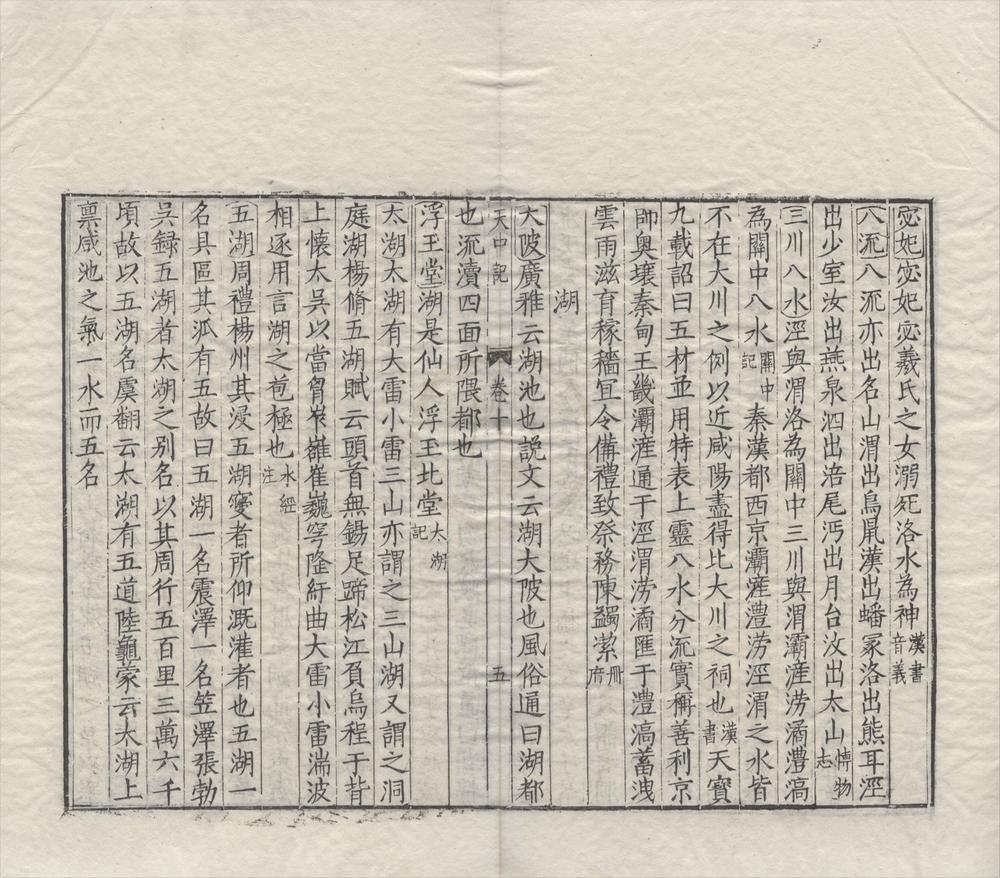 宓妃宓妃宓羲氏之女溺死洛水為神漢書音義
八流八流亦出名山渭出鳥鼠漢出嶓冢洛出熊耳涇
出少室汝出燕泉泗出涪尾沔出月台汶出太山博物志
三川八水涇與渭洛為關中三川與渭灞滻涝潏澧滈
為關中八水關中記秦漢都西京灞滻澧涝涇渭之水皆
不在大川之例以近咸陽盡得比大川之祠也漢書天寶
九載詔曰五材並用特表上靈八水分流實稱善利京
師奧壤秦甸王畿灞滻通于涇渭涝潏匯于澧滈蓄洩
雲雨滋育稼穡宜令備禮致祭務陳蠲潔冊府
湖
大陂廣雅云湖池也說文云湖大陂也風俗通曰湖都
天中記 卷十 五
也流瀆四面所隈都也
浮玉堂湖是仙人浮玉北堂太湖記
太湖太湖有大雷小雷三山亦謂之三山湖又謂之洞
庭湖楊脩五湖賦云頭首無錫足蹄松江負烏程于背
上懷太吳以當胷岝嶺崔巍穹隆紆曲大雷小雷湍波
相逐用言湖之苞極也水經注
五湖周禮楊州其浸五湖寖者所仰溉灌者也五湖一
名具區其派有五故曰五湖一名震澤一名笠澤張勃
吳録五湖者太湖之别名以其周行五百里三萬六千
頃故以五湖名虞翻云太湖有五道陸龜蒙云太湖上
禀咸池之氣一水而五名